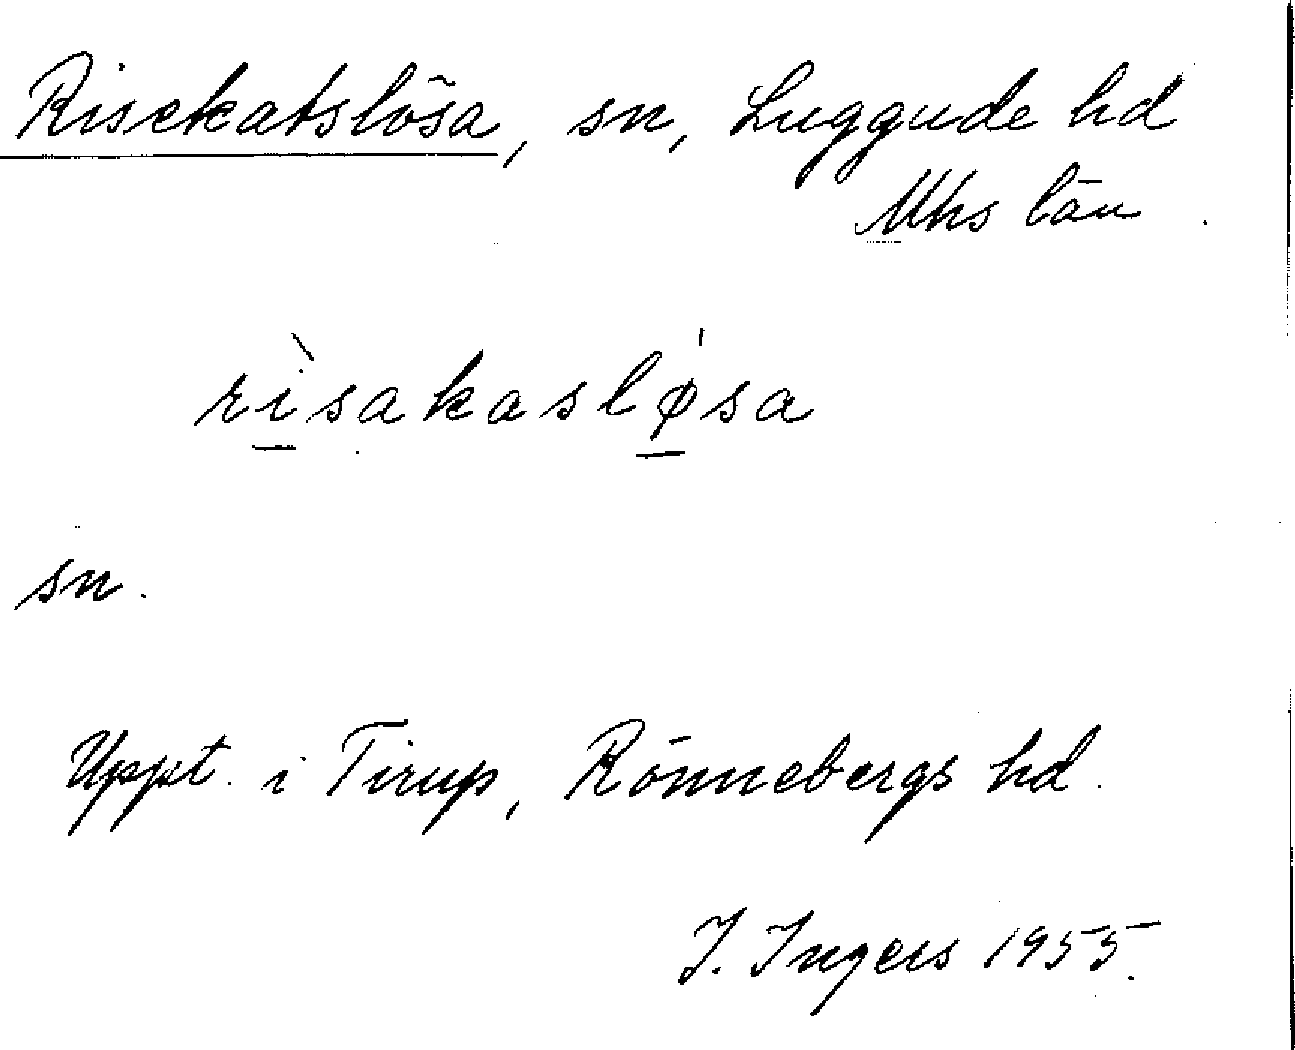 Risekatslösa, sn, Luggude hd
Mhs län
rìsakasløsa
sn.
Uppt. i Tirup, Rönnebergs hd.
I. Ingers 1955.